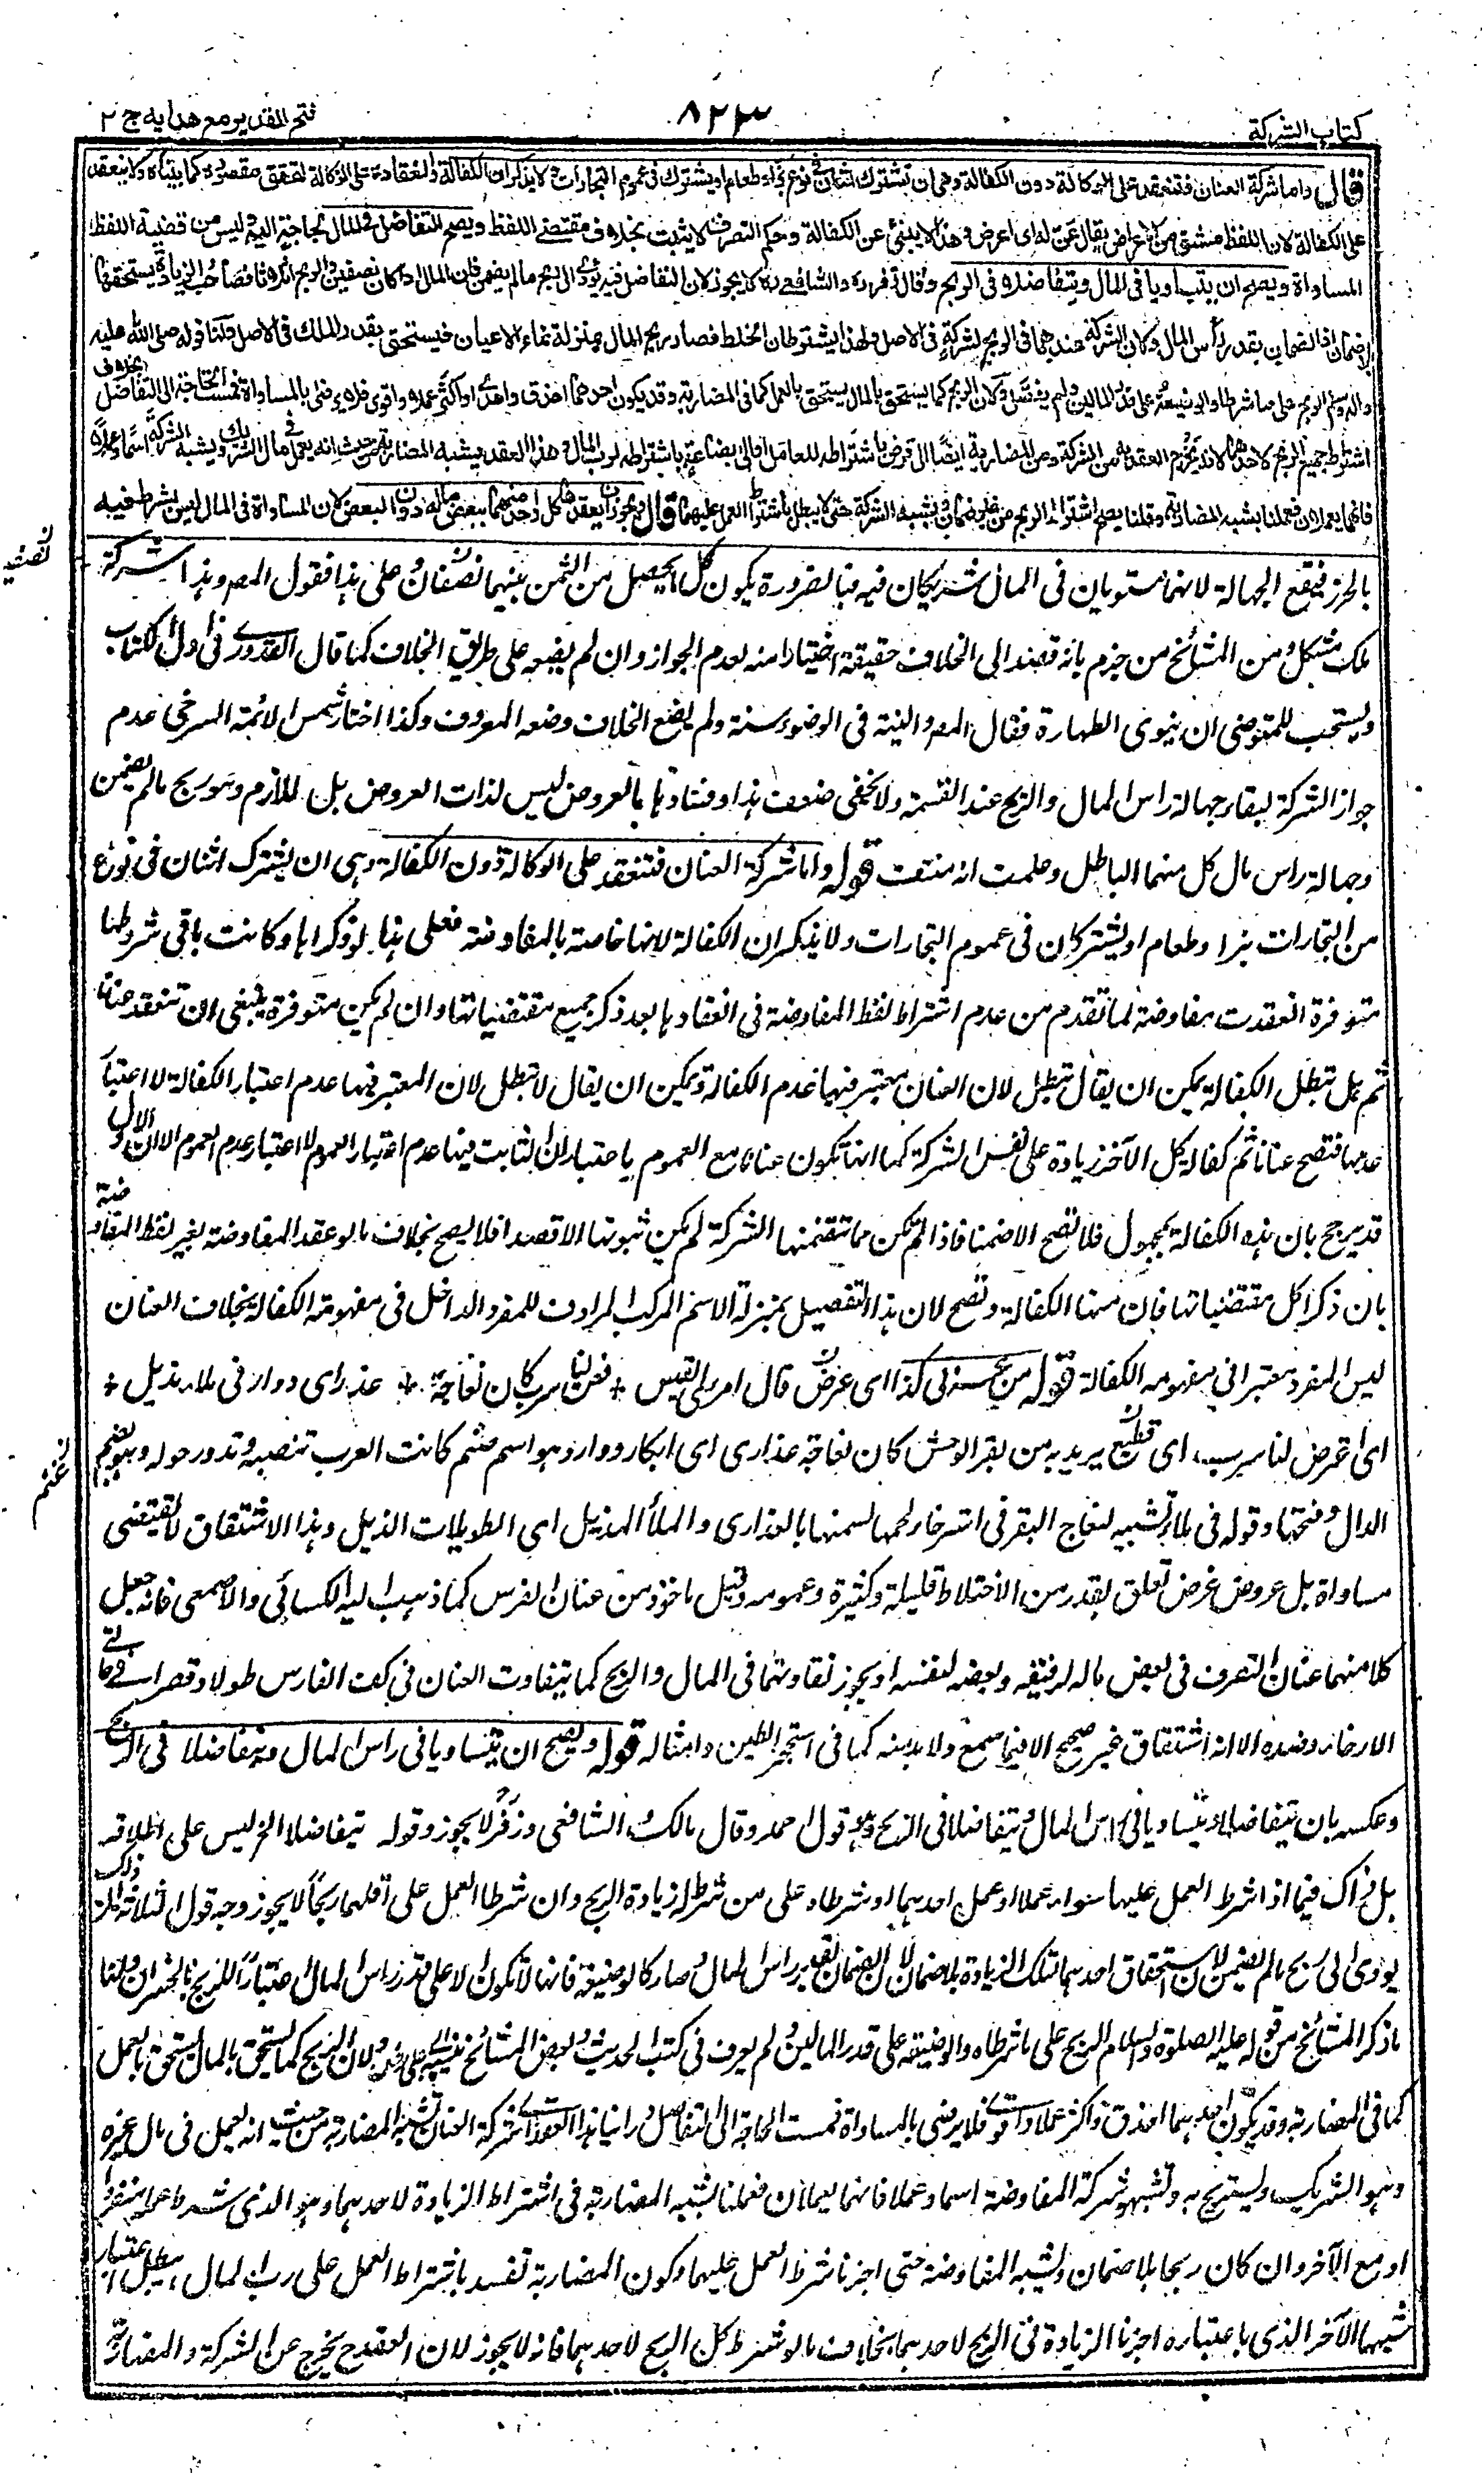 كتاب الشركة
٨٢٣
فتح القدير مع هدايه ج ٢
قال واما شركة العنان فتنعقد على الوكالة دون الكفالة وهي ان يشترك اثنان في نوع بز او طعام او يشتركان في عموم التجارات ولا يذكران الكفالة وانعقاده على الوكالة لتحقق مقصوده كما بيناه ولا ينعقد
على الكفالة لان اللفظ مشتق من الاعراض يقال عن له اى اعرض وهذا لا ينبئ عن الكفالة وحكم التصرف لا يثبت بخلاف مقتضى اللفظ ويصح التفاضل في المال للحاجة اليه وليس من قضية اللفظ
المساواة ويصح ان يتساويا في المال ويتفاضلا في الربح وقال زفر والشافعي لا يجوز لان التفاضل فيه يؤدى الى ربح مالم يضمن فان المال اذا كان نصفين والربح اثلاثا فصاحب الزيادة يستحقها
بلا ضمان اذ الضمان بقدر رأس المال ولان الشركة عندهما في الربح للشركة في الاصل ولهذا يشترطان الخلط فصار ربح المال بمنزلة نماء الاعيان فيستحق بقدر الملك في الاصل ولنا قوله صلى الله عليه
واله وسلم الربح على ما شرطا والوضيعة على قدر المالين ولم يفصل ولان الربح كما يستحق بالمال يستحق بالعمل كما في المضاربة وقد يكون احدهما احذق واهدى او اكثر عملا واقوى فلا يرضى بالمساواة فمست الحاجة الى التفاضل بخلاف
اشتراط جميع الربح لاحدهما لانه يخرج العقد به من الشركة ومن المضاربة ايضا الى قرض باشتراطه للعامل او الى بضاعة باشتراطه لرب المال وهذا العقد يشبه المضاربة من حيث انه يعمل في مال الشريك ويشبه الشركة اسما وعملا
فانهما يعملان فعملنا بشبه المضاربة وقلنا يصح اشتراط الربح من غير ضمان ويشبه الشركة حتى لا يبطل باشتراط العمل عليهما قال ويجوز ان يعقدها كل واحد منهما ببعض ماله دون البعض لان المساواة في المال ليس بشرط فيه
بالحرز فيقع الجهالة لانهما مستويان في المال شريكان فيه فبالضرورة يكون كل ما يحصل من الثمن بينهما نصفان على هذا فقول المصـ وهذا شركة
ملك مشكل ومن المشائخ من جزم بانه قصد الى الخلاف حقيقة اختيارا منه لعدم الجواز وان لم يضعه على طريق الخلاف كما قال القدورى في اول الكتاب
ويستحب للمتوضى ان ينوى الطهارة فقال المصـ والنية في الوضوء سنة ولم يضع الخلاف وضعه المعروف وكذا اختار شمس الائمة السرخسى عدم
جواز الشركة لبقاء جهالة راس المال والربح عند القسمة ولا يخفى ضعف هذا وفسادها بالعروض ليس لذات العروض بل للازم وهو ربح مالم يضمن
وجهالة راس مال كل منهما الباطل وعلمت انه منتف قوله واما شركة العنان فتنعقد على الوكالة دون الكفالة وهى ان يشترك اثنان في نوع
من التجارات بز او طعام او يشتركان في عموم التجارات ولا يذكران الكفالة لانها خاصة بالمفاوضة فعلى هذا لو ذكراها وكانت باقى شروطها
متوفرة انعقدت مفاوضة لما تقدم من عدم اشتراط لفظ المفاوضة في انعقادها بعد ذكر جميع مقتضياتها وان لم يكن متوفرة ينبغى ان تنعقد عنانا
ثم هل تبطل الكفالة يمكن ان يقال تبطل لان العنان معتبر فيها عدم الكفالة ويمكن ان يقال لا تبطل لان المعتبر فيها عدم اعتبار الكفالة لا اعتبار
عدمها فتصح عنانا ثم كفالة كل الآخر زيادة على نفس الشركة كما انها تكون عنانا مع العموم باعتبار ان الثابت فيها عدم اعتبار العموم لا اعتبار عدم العموم الا ان الاول
قد يرجح بان هذه الكفالة بمجهول فلا تصح الا ضمنا فاذا لم تكن مما تتضمنها الشركة لم يكن ثبوتها الا قصدا فلا يصح بخلاف ما لو عقد المفاوضة بغير لفظ المفاوضة
بان ذكرا كل مقتضياتها فان منها الكفالة وتصح لان هذا التفصيل بمنزلة الاسم المركب المرادف للمفرد الداخل في مفهومه الكفالة بخلاف العنان
ليس المفرد معتبرا في مفهومه الكفالة قوله من عن لى كذا اى عرض قال امرؤ القيس ؞ فعن لنا سرب كان نعاجه ؞ عذارى دوار في ملاء مذيل ؞
اى اعترض لنا سرب اى قطيع يريد به من بقر الوحش كان نعاجه عذارى اى ابكار ودوار وهو اسم صنم كانت العرب تنصبه وتدور حوله وهو بضم
الدال وفتحها وقوله في ملاء تشبيه لنعاج البقر في استرخاء لحمها لسمنها بالعذارى والملأ المذيل اى الطويلات الذيل وهذا الاشتقاق لا يقتضى
مساواة بل عروض غرض تعلق بقدر من الاختلاط قليلة وكثيرة وعمومه وقيل ماخوذ من عنان الفرس كما ذهب اليه الكسائى والاصمعى فانه جعل
كلا منهما عنان التصرف في بعض ماله لرفيقه وبعضه لنفسه او يجوز تفاوتهما في المال والربح كما يتفاوت العنان في كف الفارس طولا وقصرا في حالتى
الارخاء وضده الا انه اشتقاق غير صحيح الا فيما سمع ولا بد منه كما في استحجر الطين وامثاله قوله ويصح ان يتساويا في راس المال ويتفاضلا في الربح
وعكسه بان يتفاضلا ويتساويا في راس المال ويتفاضلا في الربح وهو قول احمد وقال مالك والشافعى وزفر لا يجوز وقوله يتفاضلا الخ ليس على اطلاقه
بل ذاك فيما اذا شرط العمل عليهما سواء عملا او عمل احدهما او شرطاه على من شرط له زيادة الربح وان شرطا العمل على اقلهما ربحا لا يجوز وجه قول الثلاثة ان ذلك
يؤدى الى ربح مالم يضمن لان استحقاق احدهما تلك الزيادة بلا ضمان لان الضمان بقدر راس المال وصار كالوضيعة فانها لا تكون الا على قدر راس المال اعتبارا للربح بالخسران ولنا
ما ذكر المشائخ من قوله عليه الصلوة والسلام الربح على ما شرطاه والوضيعة على قدر المالين ولم يعرف في كتب الحديث وبعض المشائخ ينسبه الى على ولان الربح كما يستحق بالمال يستحق بالعمل
كما في المضاربة وقد يكون احدهما احذق واكثر عملا واقوى فلا يرضى بالمساواة فمست الحاجة الى التفاضل ورابعا هذا العقد اى شركة العنان تشبه المضاربة من حيث انه يعمل في مال غيره
وهو الشريك ويستربح به وتشبه شركة المفاوضة اسما وعملا فانهما يعملان فعملنا بشبه المضاربة في اشتراط الزيادة لاحدهما وهو الذى شرط عمله منفردا
او مع الآخر وان كان ربحا بلا ضمان وبشبه المفاوضة حتى اجزنا شرط العمل عليهما وكون المضاربة تفسد باشتراط العمل على رب المال لا يبطل اعتبار
شبهها الآخر الذى باعتباره اجزنا الزيادة في الربح لاحدهما بخلاف ما لو شرط كل الربح لاحدهما فانه لا يجوز لان العقد ح يخرج عن الشركة والمضاربة